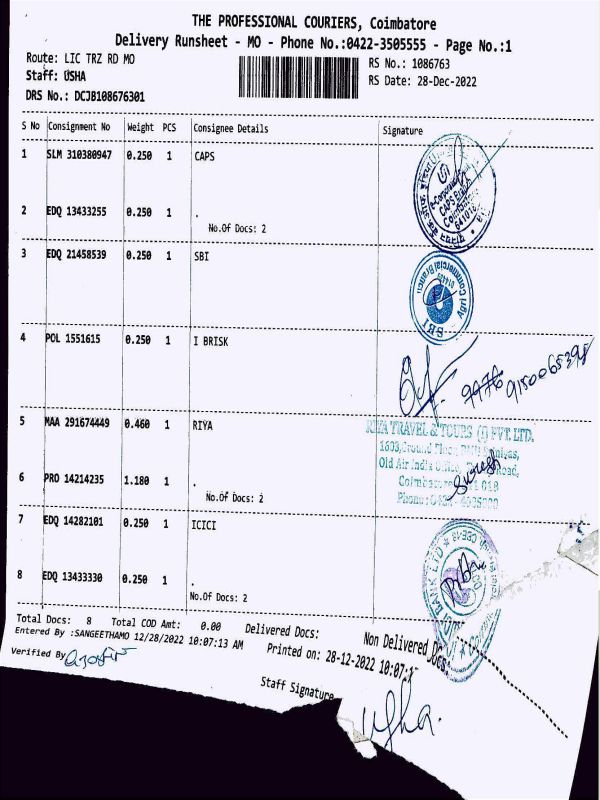 THE PROFESSIONAL COURIERS, Coimbatore
Delivery Runsheet - MO - Phone No.:0422-3505555 - Page No.:1
Route: LIC TRZ RD MO
RS No.: 1086763
Staff: USHA
RS Date: 28-Dec-2022
DRS No.: DCJB108676301
S No Consignment No Weight PCS Consignee Details Signature
1 SLM 310380947 0.250 1 CAPS
2 EDQ 13433255 0.250 1 .
No.Of Docs: 2
3 EDQ 21458539 0.250 1 SBI
4 POL 1551615 0.250 1 I BRISK
9150065398
5 MAA 291674449 0.460 1 RIYA
RIYA TRAVEL & TOURS (I) PVT. LTD.
Old Air India Road,
6 PRO 14214235 1.180 1 .
Suresh
No.Of Docs: 2
7 EDQ 14282101 0.250 1 ICICI
8 EDQ 13433330 0.250 1 .
No.Of Docs: 2
Total Docs: 8 Total COD Amt: 0.00 Delivered Docs: Non Delivered Docs:
Entered By :SANGEETHAMO 12/28/2022 10:07:13 AM Printed on: 28-12-2022 10:07:1
Verified By
Staff Signature
Usha.